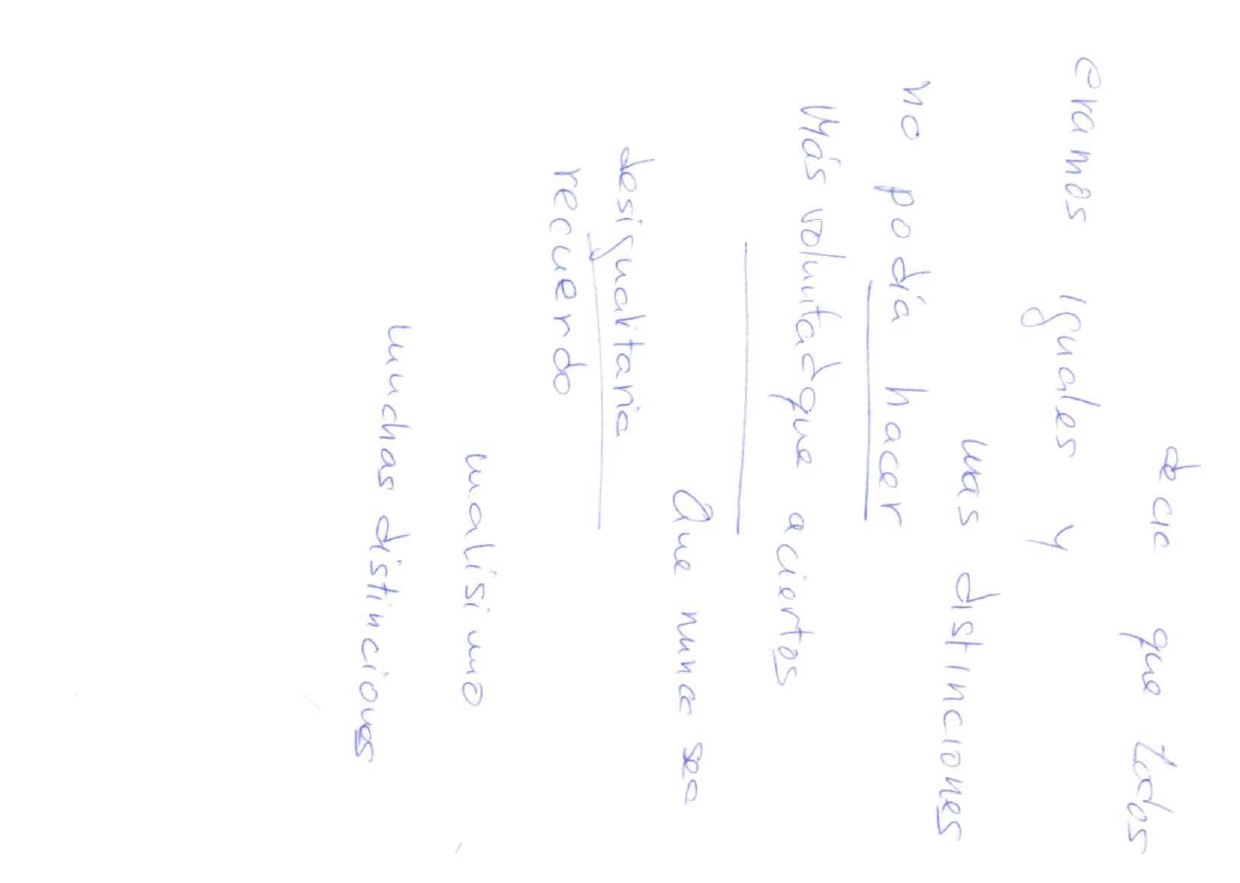 decia que todos
eramos iguales y
mas distinciones
no podía hacer
Más voluntad que aciertos
Que nunca sea
desigualitaria
recuerdo
malísimo
munchas distinciones